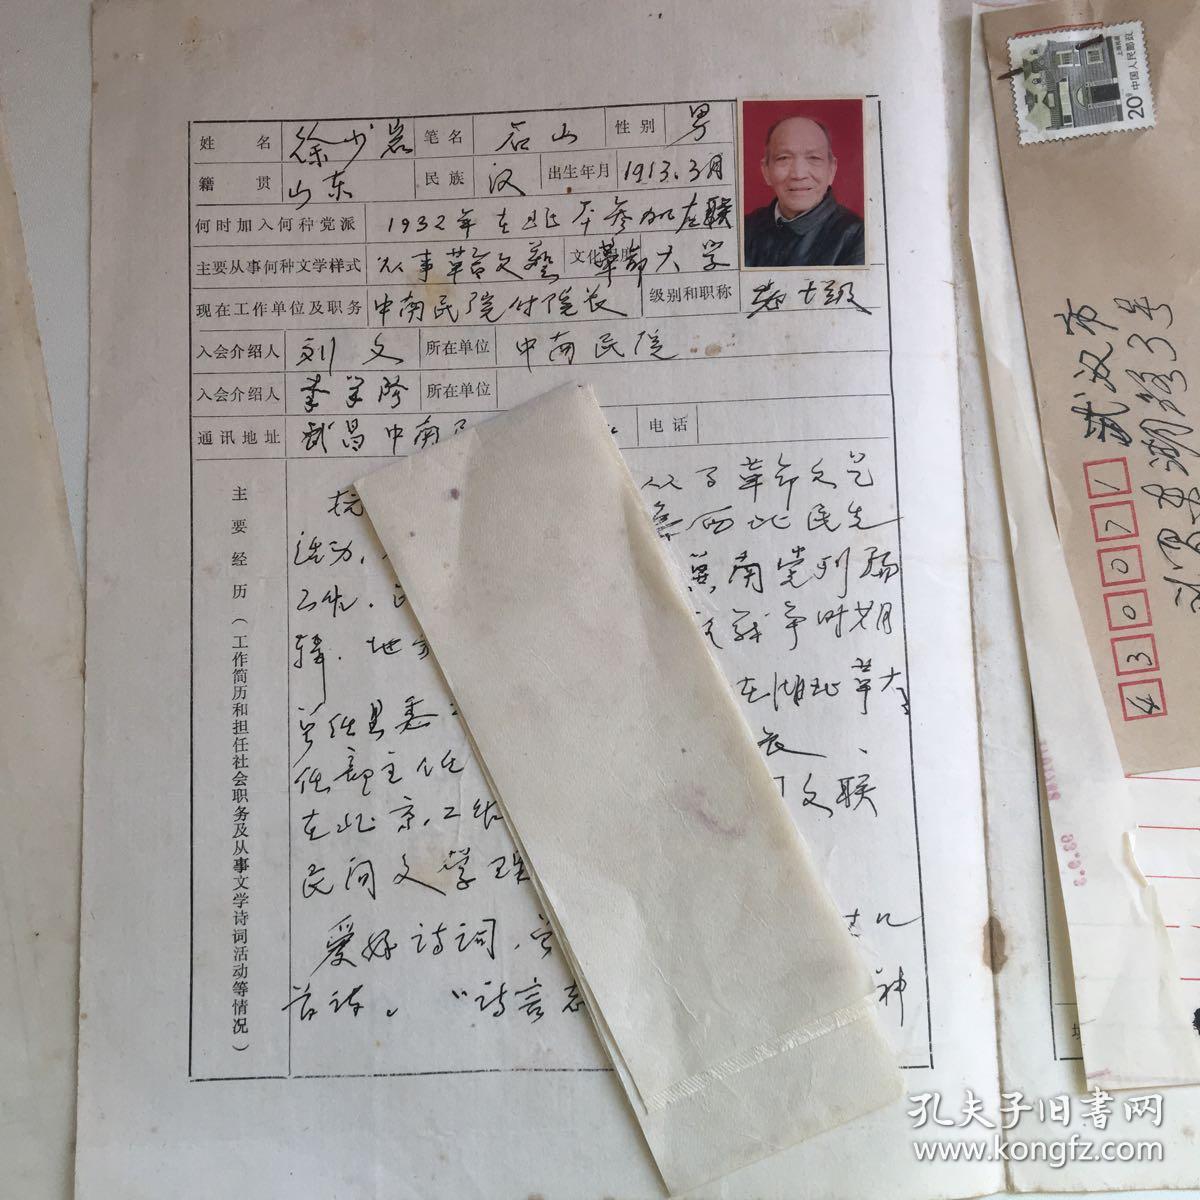 姓名 徐少岩 笔名 石山 性别 男
籍贯 山东 民族 汉 出生年月 1913.3月
何时加入何种党派 1932年在北平参加左联
主要从事何种文学样式 从事革命文艺 文化程度 华北大学
现在工作单位及职务 中南民院付院长 级别和职称 老七级
入会介绍人 刘文 所在单位 中南民院
入会介绍人 所在单位
通讯地址 武昌中南 电话
主要经历（工作简历和担任社会职务及从事文学诗词活动等情况）
抗 革命文艺
活动, 西北民先
工作. 冀南党刊编
辑. 地 战争时期
曾任县委 在湖北革大
任部主任 长、
在北京.工作 文联
民间文学
爱好诗词, 几
首诗。 "诗言志 神
上海民居
20分
中国人民邮政
430071
武汉市
3号
孔夫子旧书网
www.kongfz.com